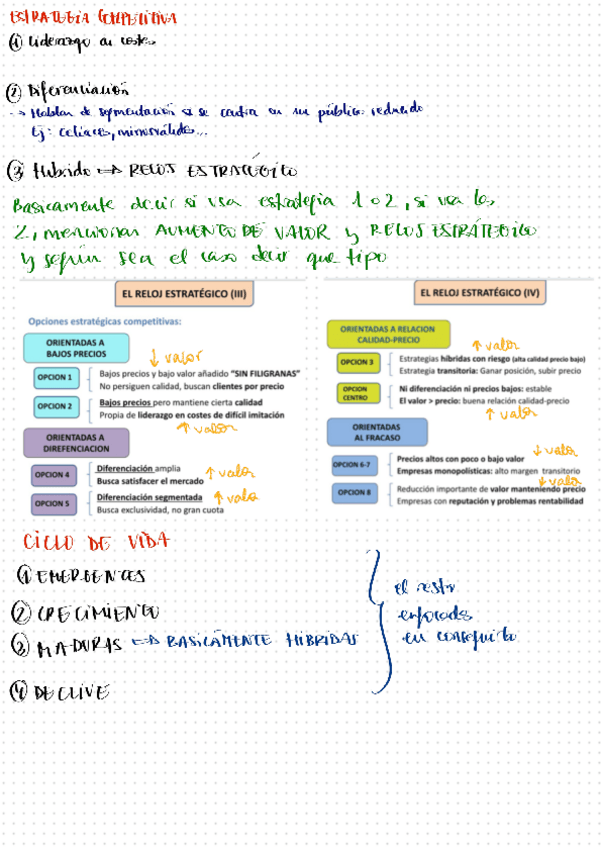 ESTRATEGIA COMPETITIVA
① Liderazgo en costes
② Diferenciación
→ Hablan de segmentación si se centra en un público reducido
Ej: celiacos, minusválidos...
③ Hibrido => RELOJ ESTRATÉGICO
Basicamente decir si usa estrategia 1 o 2, si usa la
2, mencionar AUMENTO DE VALOR y RELOJ ESTRATEGICO
y según sea el caso decir que tipo
EL RELOJ ESTRATÉGICO (III)
Opciones estratégicas competitivas:
ORIENTADAS A
BAJOS PRECIOS
↓ valor
OPCION 1
Bajos precios y bajo valor añadido “SIN FILIGRANAS”
No persiguen calidad, buscan clientes por precio
OPCION 2
Bajos precios pero mantiene cierta calidad
Propia de liderazgo en costes de difícil imitación
↑ valor
ORIENTADAS A
DIREFENCIACION
OPCION 4
Diferenciación amplia
Busca satisfacer el mercado
↑ valor
OPCION 5
Diferenciación segmentada
Busca exclusividad, no gran cuota
↑ valor
EL RELOJ ESTRATÉGICO (IV)
ORIENTADAS A RELACION
CALIDAD-PRECIO
↑ valor
OPCION 3
Estrategias híbridas con riesgo (alta calidad precio bajo)
Estrategia transitoria: Ganar posición, subir precio
OPCION
CENTRO
Ni diferenciación ni precios bajos: estable
El valor > precio: buena relación calidad-precio
↑ valor
ORIENTADAS
AL FRACASO
↓ valor
OPCION 6-7
Precios altos con poco o bajo valor
Empresas monopolísticas: alto margen transitorio
↓ valor
OPCION 8
Reducción importante de valor manteniendo precio
Empresas con reputación y problemas rentabilidad
CICLO DE VIDA
① EMERGENTES
② CRECIMIENTO
③ MADURAS => BASICAMENTE HIBRIDAS
④ DECLIVE
el resto
enfocada
en conseguirlo